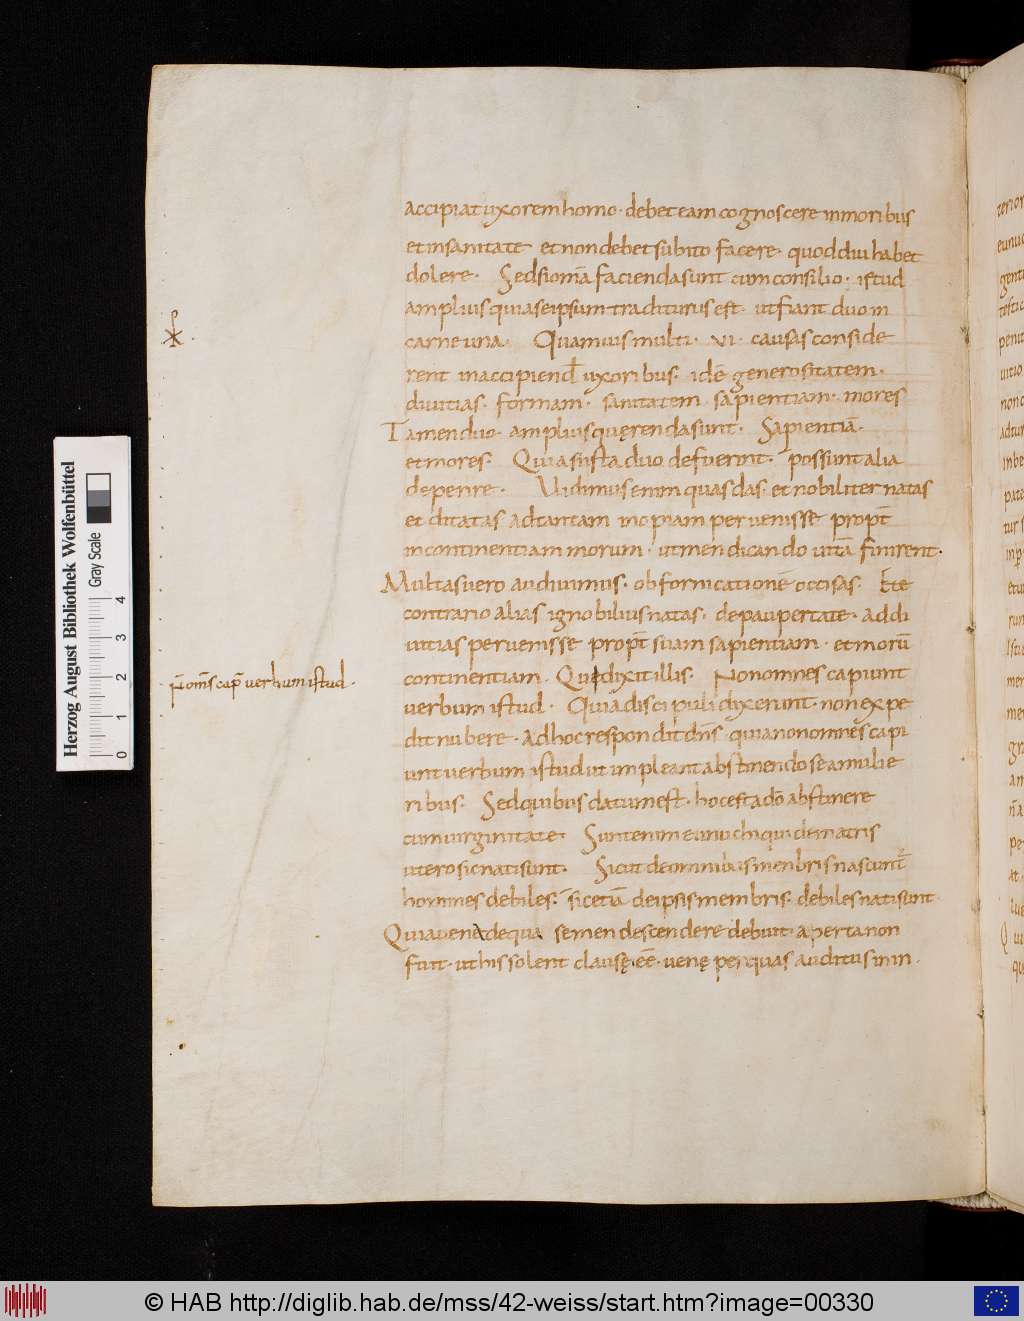 accipiat uxorem homo · debet eam cognoscere in moribus
et in sanitate et non debet subito facere · quod diu habet
dolere · Sed si omā facienda sunt cum consilio · istud
amplius quia se ipsum traditurus est · ut fiant duo in
carne una · Quamuis multi · vi · causas conside
rent in accipiend uxoribus · idē generositatem ·
diuitias · formam · sanitatem sapientiam · mores
Tamen duo · amplius quęrenda sunt · Sapientiā ·
et mores · Quia si ista duo defuerint · possunt alia
deperire · Uidimus enim quasdas et nobiliter natas
et ditatas ad tantam inopiam peruenisse propt
incontinentiam morum · ut mendicando uitā finirent ·
Multas uero audiuimus · ob fornicationē occisas · Et e
contrario alias ignobilius natas · de paupertate · ad di
uitias peruenisse propt suam sapientiam · et morū
continentiam · Qui dixit illis · Non omnes capiunt
N oms cap uerbum istud ·
uerbum istud · Quia discipuli dixerunt · non expe
dit nubere · Ad hoc respondit dns · quia non omnes capi
unt uerbum istud ut impleant abstinendo se a mulie
ribus · Sed quibus datum est · hoc est a dō abstinere
cum uirginitate · Sunt enim eunuchi qui de matris
utero sic nati sunt · Sicut de omnibus menbris nascunt
homines debiles · sic etiā de ipsis membris · debiles nati sunt
Quia uene de qua semen descendere debuit · aperta non
fuit · ut his solent clausę eē · uenę per quas auditus in in ·
Herzog August Bibliothek Wolfenbüttel
Gray Scale
0 1 2 3 4
© HAB http://diglib.hab.de/mss/42-weiss/start.htm?image=00330